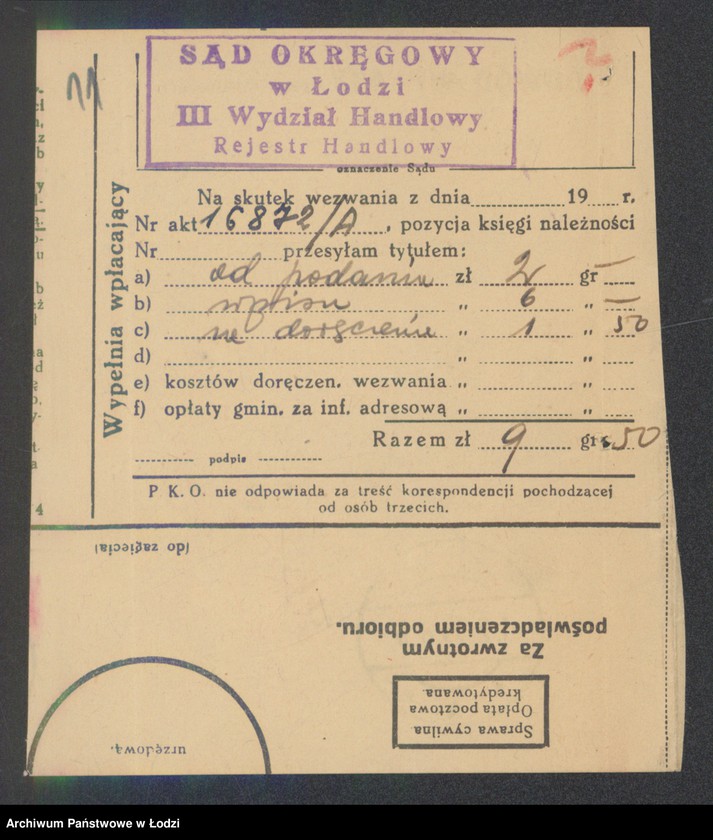 11
SĄD OKRĘGOWY
w Łodzi
III Wydział Handlowy
Rejestr Handlowy
oznaczenie Sądu
Wypełnia wpłacający
Na skutek wezwania z dnia 19 r.
Nr akt 16872/A, pozycja księgi należności
Nr przesyłam tytułem:
a) od podania zł 2 gr —
b) wpisu „ 6 „ —
c) na doręczenie „ 1 „ 50
d) „ „
e) kosztów doręczen. wezwania „ „
f) opłaty gmin. za inf. adresową „ „
Razem zł 9 gr. 50
podpis
P K. O. nie odpowiada za treść korespondencji pochodzącej
od osób trzecich.
4
(do zagięcia)
Za zwrotnym
poświadczeniem odbioru.
Sprawa cywilna
Opłata pocztowa
kredytowana.
urzędową.
Archiwum Państwowe w Łodzi